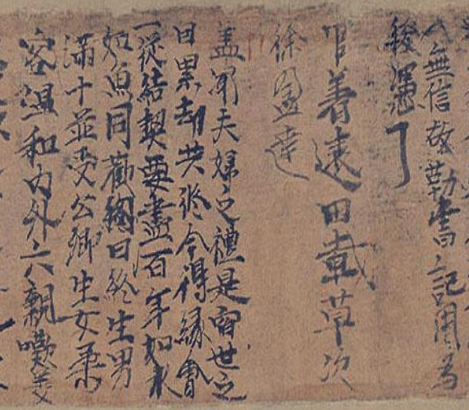 人無信故勒書記用為
後憑
善遠田載草次
徐盈達
蓋聞夫婦之禮是宿世之
因累劫共修今得緣會
一從結契要盡百年如水
如魚同歡日生男
滿十並受公卿生女柔
容温和内外六親歡美